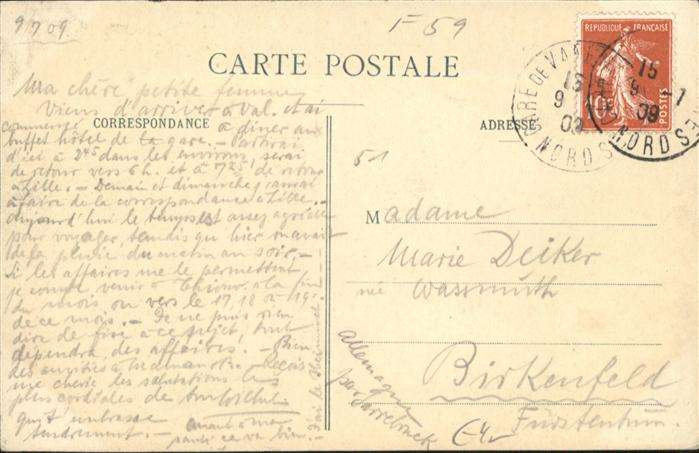 9/7 09
F 59
CARTE POSTALE
REPUBLIQUE FRANÇAISE
10c
POSTES
GARE DE VA
NORD
15
9
09
NORD
CORRESPONDANCE
ADRESSE
51
Ma chère petite femme
Viens d'arriver à Val. et ai
commencé à dîner au
buffet hôtel de la gare. - Partirai
d'ici à 2 45 dans les environs, serai
de retour vers 6h. et à 7 25 de retour
à Lille. - Demain et dimanche j'aurai
à faire de la correspondance à Lille. -
Aujourd'hui le temps est assez agréable
pour voyager, tandis que hier on avait
de la pluie du matin au soir. -
Si les affaires me le permettent
je compte venir à la fin
du mois ou vers le 17, 18 à 19
de ce mois. - Je ne puis rien
dire de fixe à ce sujet, tout
dépendra des affaires. - Bien
des amitiés à - Reçois
ma chérie les salutations les
plus cordiales de ton
qui t'embrasse
tendrement. -
santé ça va bien. -
Madame
Marie Deiker
née Wassmuth
Birkenfeld
Fürstentum.
Allemagne
par Sarrebruck